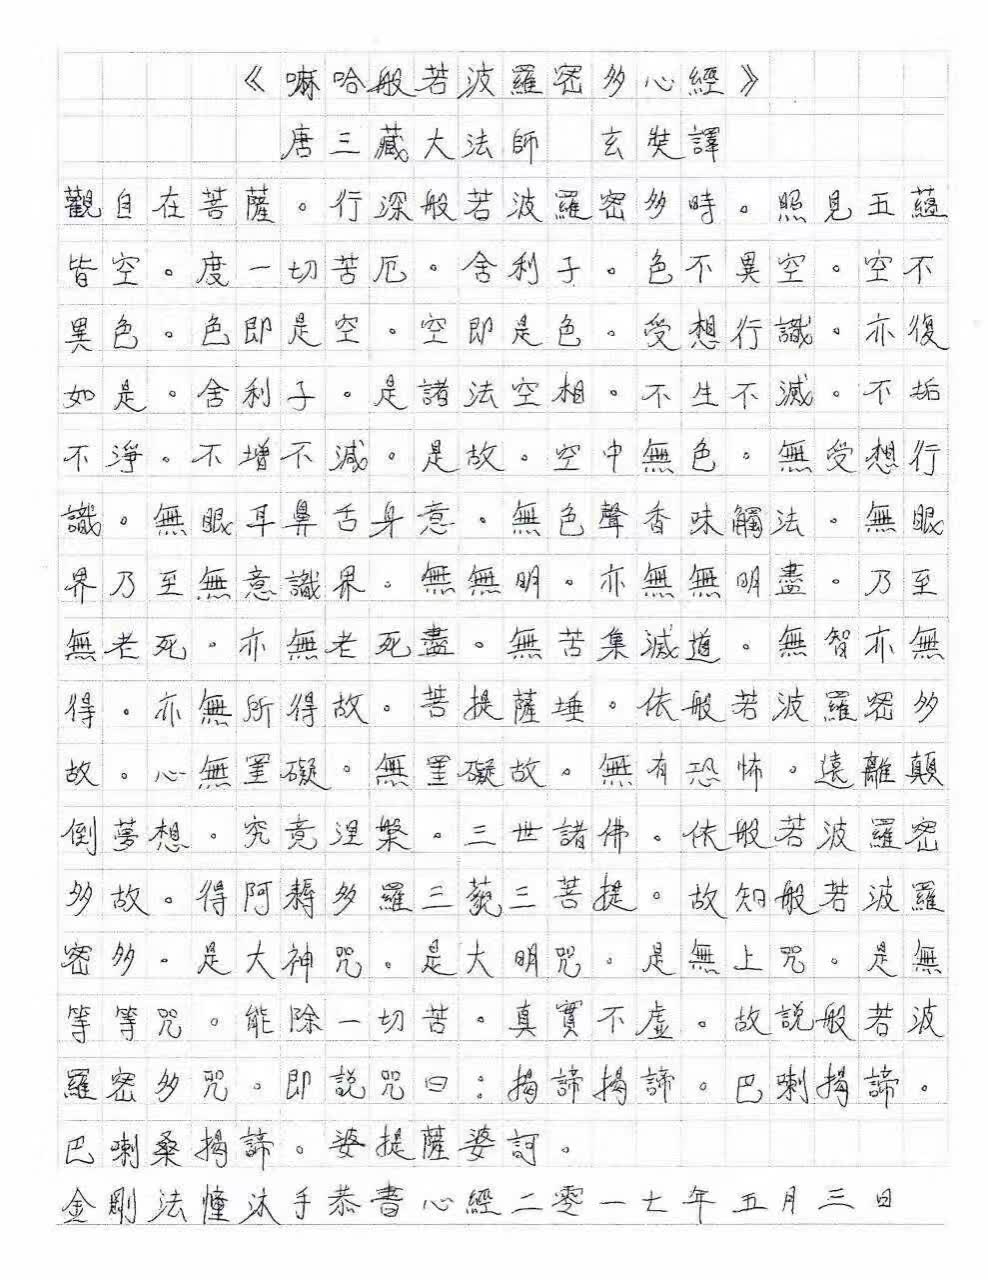 《嘛哈般若波羅密多心經》
唐三藏大法師　玄奘譯
觀自在菩薩。行深般若波羅密多時。照見五蘊
皆空。度一切苦厄。舍利子。色不異空。空不
異色。色即是空。空即是色。受想行識。亦復
如是。舍利子。是諸法空相。不生不滅。不垢
不淨。不增不減。是故。空中無色。無受想行
識。無眼耳鼻舌身意。無色聲香味觸法。無眼
界乃至無意識界。無無明。亦無無明盡。乃至
無老死。亦無老死盡。無苦集滅道。無智亦無
得。亦無所得故。菩提薩埵。依般若波羅密多
故。心無罣礙。無罣礙故。無有恐怖。遠離顛
倒夢想。究竟涅槃。三世諸佛。依般若波羅密
多故。得阿耨多羅三藐三菩提。故知般若波羅
密多。是大神咒。是大明咒。是無上咒。是無
等等咒。能除一切苦。真實不虛。故說般若波
羅密多咒。即說咒曰：揭諦揭諦。巴喇揭諦。
巴喇桑揭諦。婆提薩婆訶。
金剛法幢沐手恭書心經二零一七年五月三日